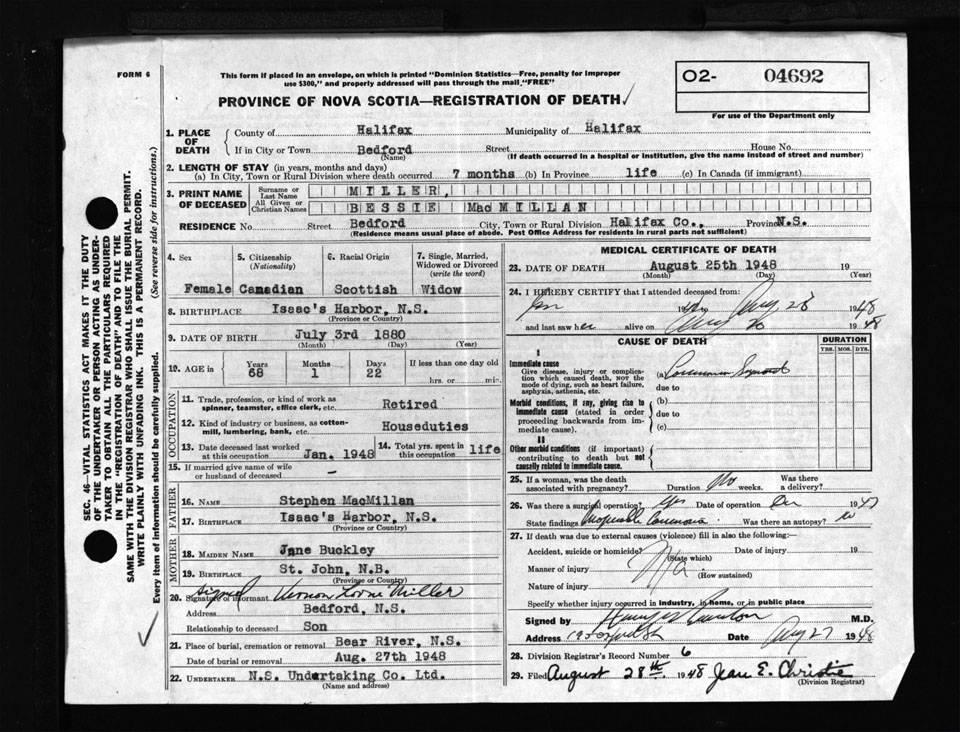 FORM 6
This form if placed in an envelope, on which is printed "Dominion Statistics—Free, penalty for improper
use $300," and properly addressed will pass through the mail "FREE"
O2- 04692
For use of the Department only
PROVINCE OF NOVA SCOTIA—REGISTRATION OF DEATH
1. PLACE OF DEATH
County of Halifax Municipality of Halifax
If in City or Town Bedford Street House No.
(Name) (If death occurred in a hospital or institution, give the name instead of street and number)
2. LENGTH OF STAY (in years, months and days)
(a) In City, Town or Rural Division where death occurred 7 months (b) In Province life (c) In Canada (if immigrant)
3. PRINT NAME OF DECEASED
Surname or Last Name MILLER,
All Given or Christian Names BESSIE MacMILLAN
RESIDENCE No. Street Bedford City, Town or Rural Division Halifax Co., Province N.S.
(Residence means usual place of abode. Post Office Address for residents in rural parts not sufficient)
4. Sex
Female
5. Citizenship (Nationality)
Canadian
6. Racial Origin
Scottish
7. Single, Married, Widowed or Divorced (write the word)
Widow
8. BIRTHPLACE Isaac's Harbor, N.S.
(Province or Country)
9. DATE OF BIRTH July 3rd 1880
(Month) (Day) (Year)
10. AGE in Years Months Days If less than one day old
68 1 22 hrs. or min.
OCCUPATION
11. Trade, profession, or kind of work as
spinner, teamster, office clerk, etc. Retired
12. Kind of industry or business, as cotton-
mill, lumbering, bank, etc. Houseduties
13. Date deceased last worked
at this occupation Jan. 1948
14. Total yrs. spent in
this occupation life
15. If married give name of wife
or husband of deceased -
FATHER
16. NAME Stephen MacMillan
17. BIRTHPLACE Isaac's Harbor, N.S.
(Province or Country)
MOTHER
18. MAIDEN NAME Jane Buckley
19. BIRTHPLACE St. John, N.B.
(Province or Country)
Signed
20. Signature of informant Vernon Lorne Miller
Address Bedford, N.S.
Relationship to deceased Son
21. Place of burial, cremation or removal Bear River, N.S.
Date of burial or removal Aug. 27th 1948
22. UNDERTAKER N.S. Undertaking Co. Ltd.
(Name and address)
MEDICAL CERTIFICATE OF DEATH
23. DATE OF DEATH August 25th 1948 19
(Month) (Day) (Year)
24. I HEREBY CERTIFY that I attended deceased from:
Jan 19 to Aug 1948
and last saw her alive on Aug 1948
CAUSE OF DEATH
DURATION
YRS. MOS. DYS.
I
Immediate cause
Give disease, injury or complica-
tion which caused death, NOT the
mode of dying, such as heart failure,
asphyxia, asthenia, etc.
(a) Carcinoma Sigmoid
due to
Morbid conditions, if any, giving rise to
immediate cause (stated in order
proceeding backwards from im-
mediate cause).
(b)
due to
(c)
II
Other morbid conditions (if important)
contributing to death but not
causally related to immediate cause.
25. If a woman, was the death
associated with pregnancy? Duration No weeks. Was there a delivery?
26. Was there a surgical operation? Yes Date of operation Dec 1947
State findings Inoperable Carcinoma Was there an autopsy? no
27. If death was due to external causes (violence) fill in also the following:—
Accident, suicide or homicide? Date of injury 19
(State which)
Manner of injury N/a
(How sustained)
Nature of injury
Specify whether injury occurred in industry, in home, or in public place
Signed by M.D.
Address Date Aug 27 1948
28. Division Registrar's Record Number 6
29. Filed August 28th. 1948 Jean E. Christie
(Division Registrar)
SEC. 46—VITAL STATISTICS ACT MAKES IT THE DUTY
OF THE UNDERTAKER OR PERSON ACTING AS UNDER-
TAKER TO OBTAIN ALL THE PARTICULARS REQUIRED
IN THE "REGISTRATION OF DEATH" AND TO FILE THE
SAME WITH THE DIVISION REGISTRAR WHO SHALL ISSUE THE BURIAL PERMIT.
WRITE PLAINLY WITH UNFADING INK. THIS IS A PERMANENT RECORD.
Every item of information should be carefully supplied. (See reverse side for instructions.)